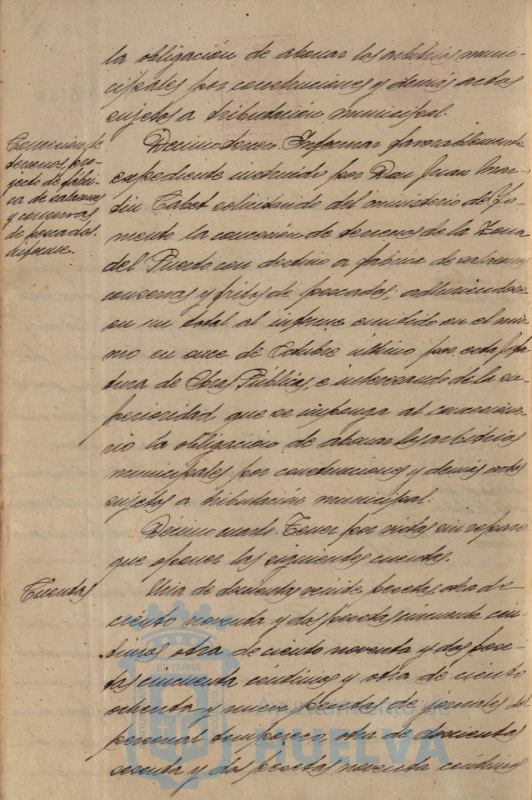 la obligación de abonar los arbitrios muni-
cipales por construcciones y demás actos
sujetos a tributación municipal.
Concesión de
terrenos, pro-
yecto de fábri-
ca de salazones
y conservas
de pescados.
Informe.
Decimotercero. Informar favorablemente
expediente instruido por Don Juan Mar-
tín Cabet solicitando del ministerio de Fo-
mento la concesión de terrenos de la Zona
del Puerto con destino a fabrica de salazones
conservas y fritos de pescados, adhiriendose
en un total al informe emitido en el mis-
mo en once de Octubre último por esta Jefa-
tura de Obras Públicas, e interesando de la su-
perioridad que se imponga al concesiona-
rio la obligación de abonar los arbitrios
municipales por construcciones y demás actos
sujetos a tributación municipal.
Decimocuarto. Tener por vistas sin reparo
que oponer las siguientes cuentas.
Cuentas
Una de doscientas veinte pesetas, otra de
ciento noventa y dos pesetas cincuenta cén-
timos otra de ciento noventa y dos pese-
tas cincuenta céntimos y otra de ciento
ochenta y nueve pesetas de jornales del
personal temporero, otra de doscientas
sesenta y dos pesetas noventa céntimos
Ayuntamiento de
HUELVA